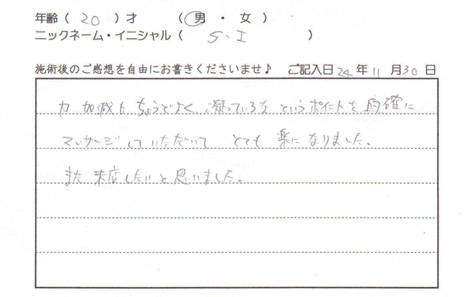 年齢（20）才　（男・女）
ニックネーム・イニシャル（S・I）
施術後のご感想を自由にお書きくださいませ♪　ご記入日24年11月30日
力加減もちょうどよく、凝っているなというポイントを的確に
マッサージしていただいてとても楽になりました。
また来店したいと思いました。